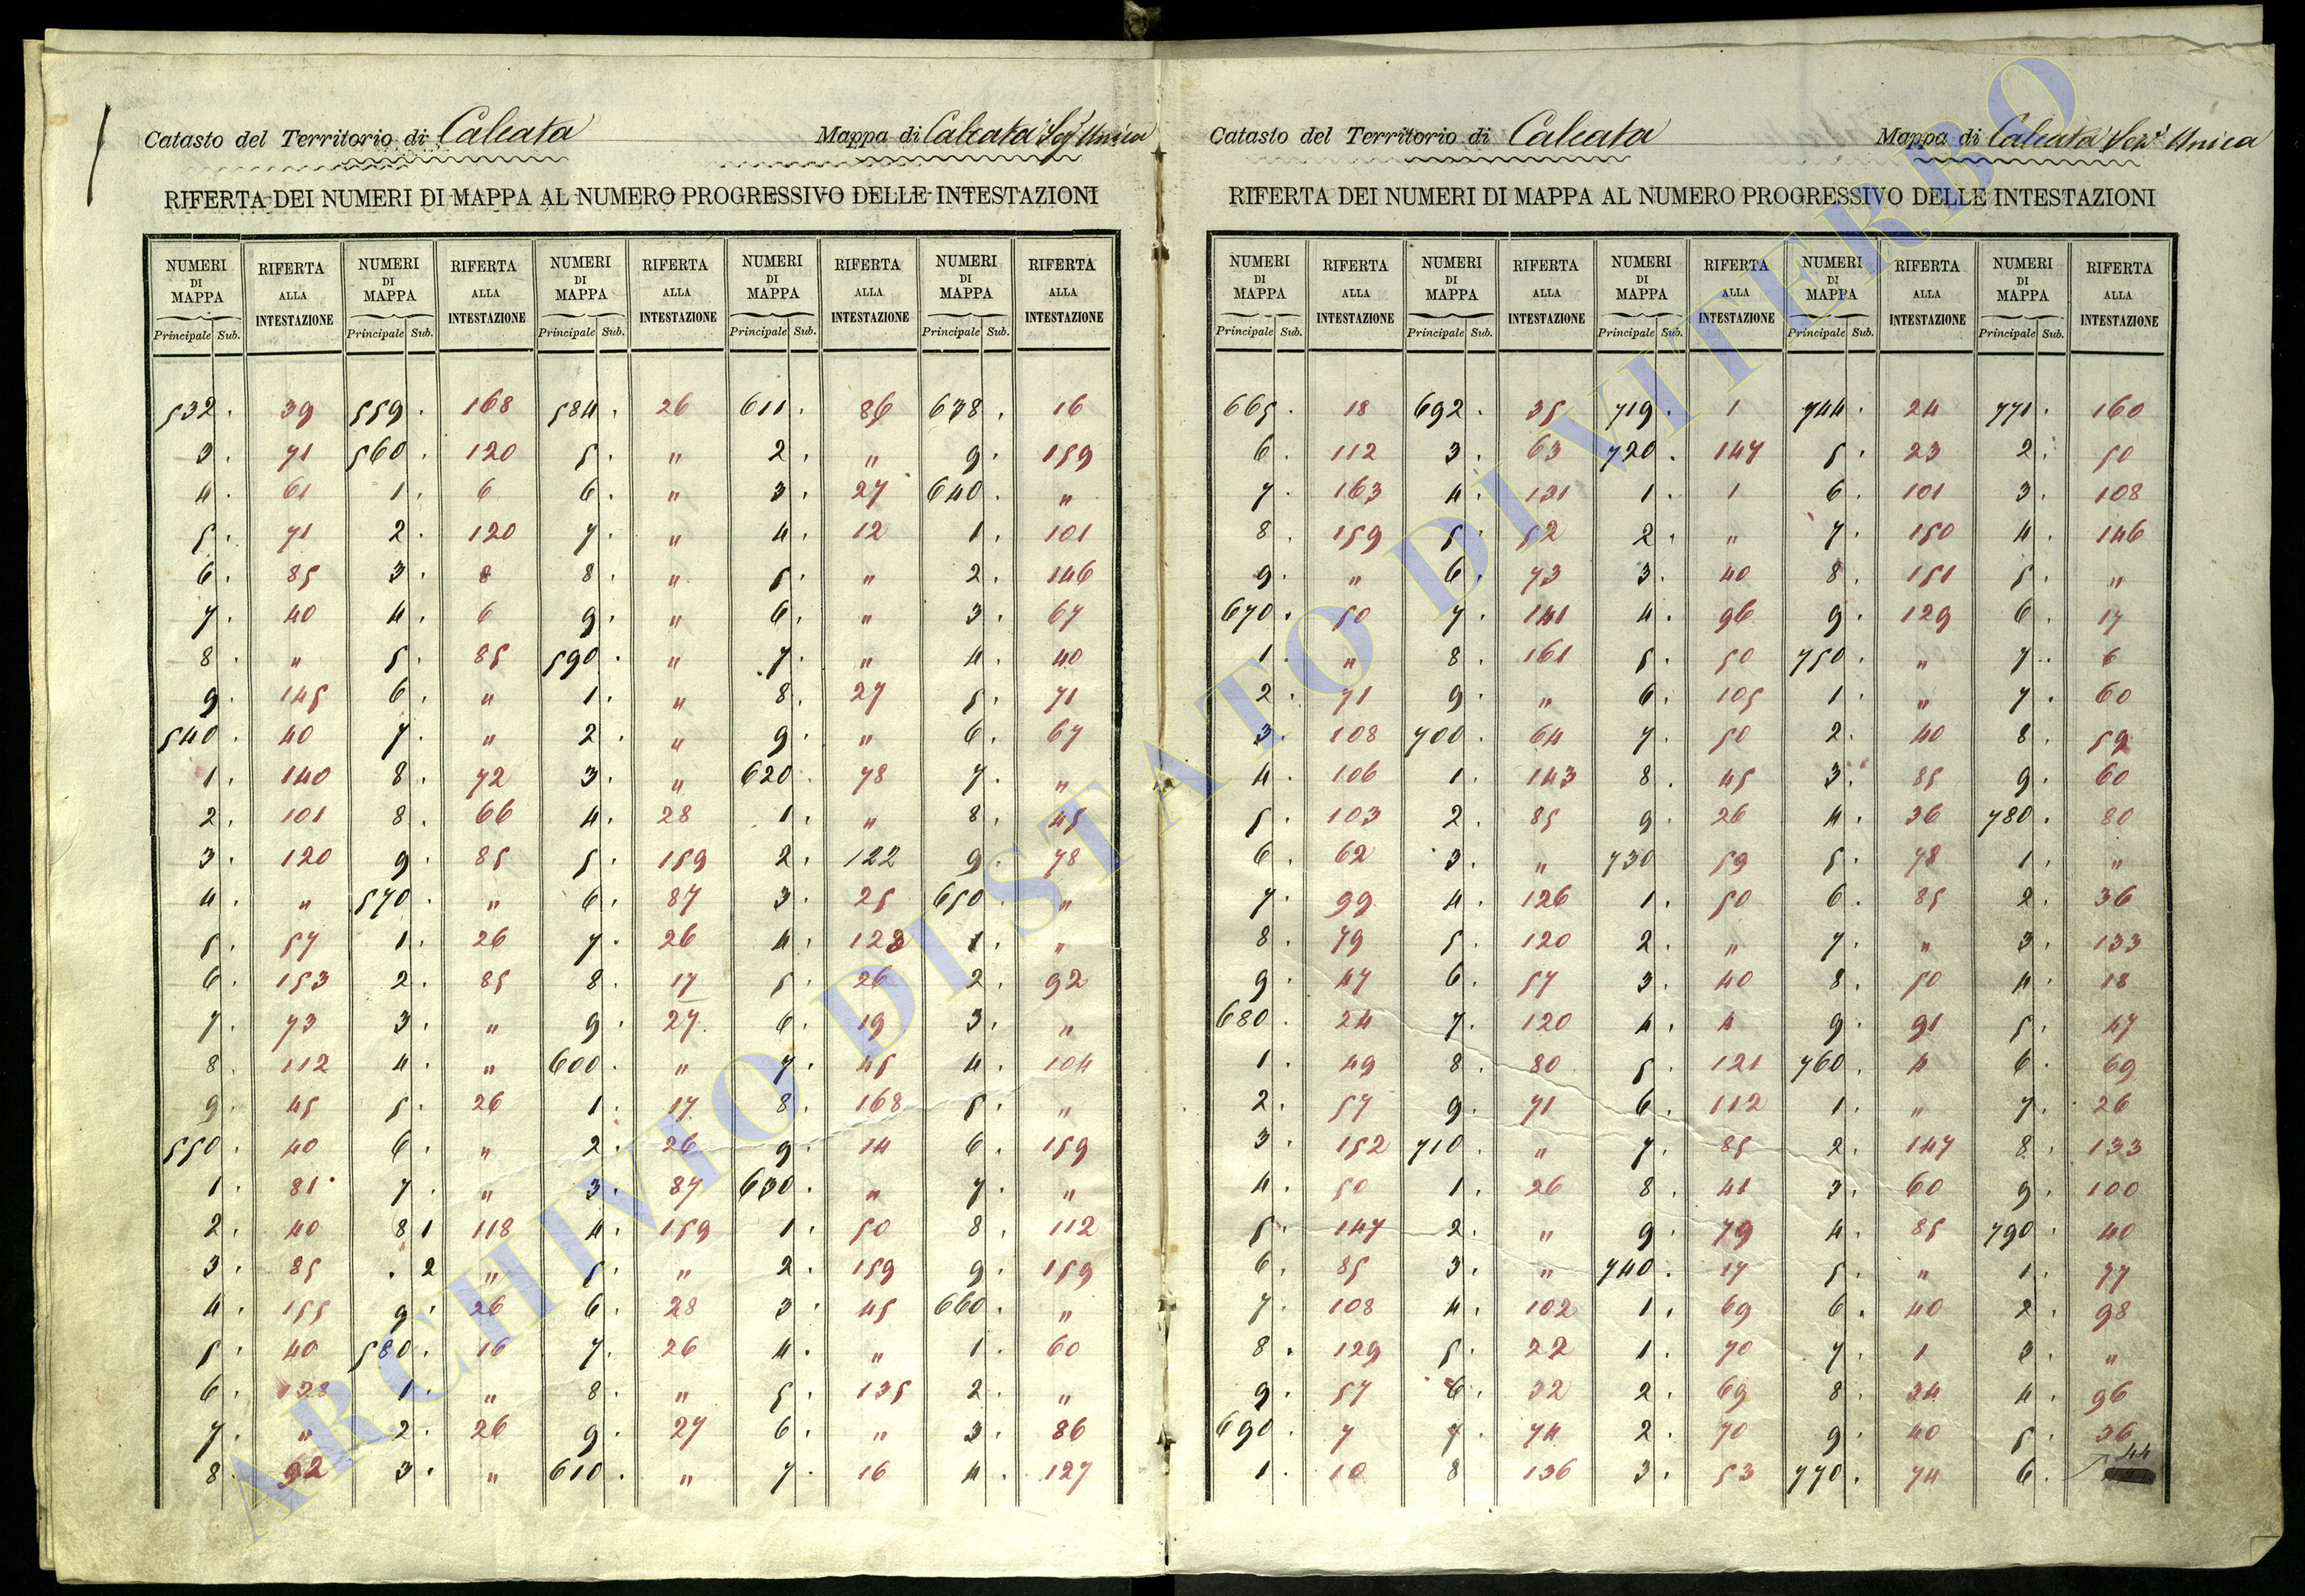 Catasto del Territorio di Calcata Mappa di Calcata Sez.e Unica
RIFERTA DEI NUMERI DI MAPPA AL NUMERO PROGRESSIVO DELLE INTESTAZIONI
NUMERI RIFERTA NUMERI RIFERTA NUMERI RIFERTA NUMERI RIFERTA NUMERI RIFERTA
DI ALLA DI ALLA DI ALLA DI ALLA DI ALLA
MAPPA INTESTAZIONE MAPPA INTESTAZIONE MAPPA INTESTAZIONE MAPPA INTESTAZIONE MAPPA INTESTAZIONE
Principale Sub. Principale Sub. Principale Sub. Principale Sub. Principale Sub.
532 . 39 559 . 168 584 . 26 611 . 86 638 . 16
3 . 71 560 . 120 5 . " 2 . " 9 . 159
4 . 61 1 . 6 6 . " 3 . 27 640 . "
5 . 71 2 . 120 7 . " 4 . 12 1 . 101
6 . 85 3 . 8 8 . " 5 . " 2 . 146
7 . 40 4 . 6 9 . " 6 . " 3 . 67
8 . " 5 . 85 590 . " 7 . " 4 . 40
9 . 145 6 . " 1 . " 8 . 27 5 . 71
540 . 40 7 . " 2 . " 9 . " 6 . 67
1 . 140 8 . 72 3 . " 620 . 78 7 . "
2 . 101 8 . 66 4 . 28 1 . " 8 . 45
3 . 120 9 . 85 5 . 159 2 . 122 9 . 78
4 . " 570 . " 6 . 87 3 . 25 650 . "
5 . 57 1 . 26 7 . 26 4 . 128 1 . "
6 . 153 2 . 85 8 . 17 5 . 26 2 . 92
7 . 73 3 . " 9 . 27 6 . 19 3 . "
8 . 112 4 . " 600 . " 7 . 45 4 . 104
9 . 45 5 . 26 1 . 17 8 . 168 5 . "
550 . 40 6 . " 2 . 26 9 . 14 6 . 159
1 . 81 7 . " 3 . 87 630 . " 7 . "
2 . 40 8 1 118 4 . 159 1 . 50 8 . 112
3 . 85 . 2 " 5 . " 2 . 159 9 . 159
4 . 155 9 . 26 6 . 28 3 . 45 660 . "
5 . 40 580 . 16 7 . 26 4 . " 1 . 60
6 . 128 1 . " 8 . " 5 . 135 2 . "
7 . " 2 . 26 9 . 27 6 . " 3 . 86
8 . 92 3 . " 610 . " 7 . 16 4 . 127
Catasto del Territorio di Calcata Mappa di Calcata Sez.e Unica
RIFERTA DEI NUMERI DI MAPPA AL NUMERO PROGRESSIVO DELLE INTESTAZIONI
NUMERI RIFERTA NUMERI RIFERTA NUMERI RIFERTA NUMERI RIFERTA NUMERI RIFERTA
DI ALLA DI ALLA DI ALLA DI ALLA DI ALLA
MAPPA INTESTAZIONE MAPPA INTESTAZIONE MAPPA INTESTAZIONE MAPPA INTESTAZIONE MAPPA INTESTAZIONE
Principale Sub. Principale Sub. Principale Sub. Principale Sub. Principale Sub.
665 . 18 692 . 35 719 . 1 744 . 24 771 . 160
6 . 112 3 . 63 720 . 147 5 . 23 2 . 50
7 . 163 4 . 131 1 . 1 6 . 101 3 . 108
8 . 159 5 . 52 2 . " 7 . 150 4 . 146
9 . " 6 . 73 3 . 40 8 . 151 5 . "
670 . 50 7 . 141 4 . 96 9 . 129 6 . 17
1 . " 8 . 161 5 . 50 750 . " 7 . 6
2 . 71 9 . " 6 . 105 1 . " 7 . 60
3 . 108 700 . 64 7 . 50 2 . 40 8 . 59
4 . 106 1 . 143 8 . 45 3 . 85 9 . 60
5 . 103 2 . 85 9 . 26 4 . 36 780 . 80
6 . 62 3 . " 730 59 5 . 78 1 . "
7 . 99 4 . 126 1 . 50 6 . 85 2 . 36
8 . 79 5 . 120 2 . " 7 . " 3 . 133
9 . 47 6 . 57 3 . 40 8 . 50 4 . 18
680 . 24 7 . 120 4 . 4 9 . 91 5 . 47
1 . 49 8 . 80 5 . 121 760 . 4 6 . 69
2 . 57 9 . 71 6 . 112 1 . " 7 . 26
3 . 152 710 . " 7 . 85 2 . 147 8 . 133
4 . 50 1 . 26 8 . 41 3 . 60 9 . 100
5 . 147 2 . " 9 . 79 4 . 85 790 . 40
6 . 85 3 . " 740 . 17 5 . " 1 . 77
7 . 108 4 . 102 1 . 69 6 . 40 2 . 98
8 . 129 5 . 22 1 . 70 7 . 1 3 . "
9 . 57 6 . 32 2 . 69 8 . 34 4 . 96
690 . 7 7 . 74 2 . 70 9 . 40 5 . 36
1 . 10 8 136 3 . 53 770 . 74 6 . 44
ARCHIVIO DI STATO DI VITERBO